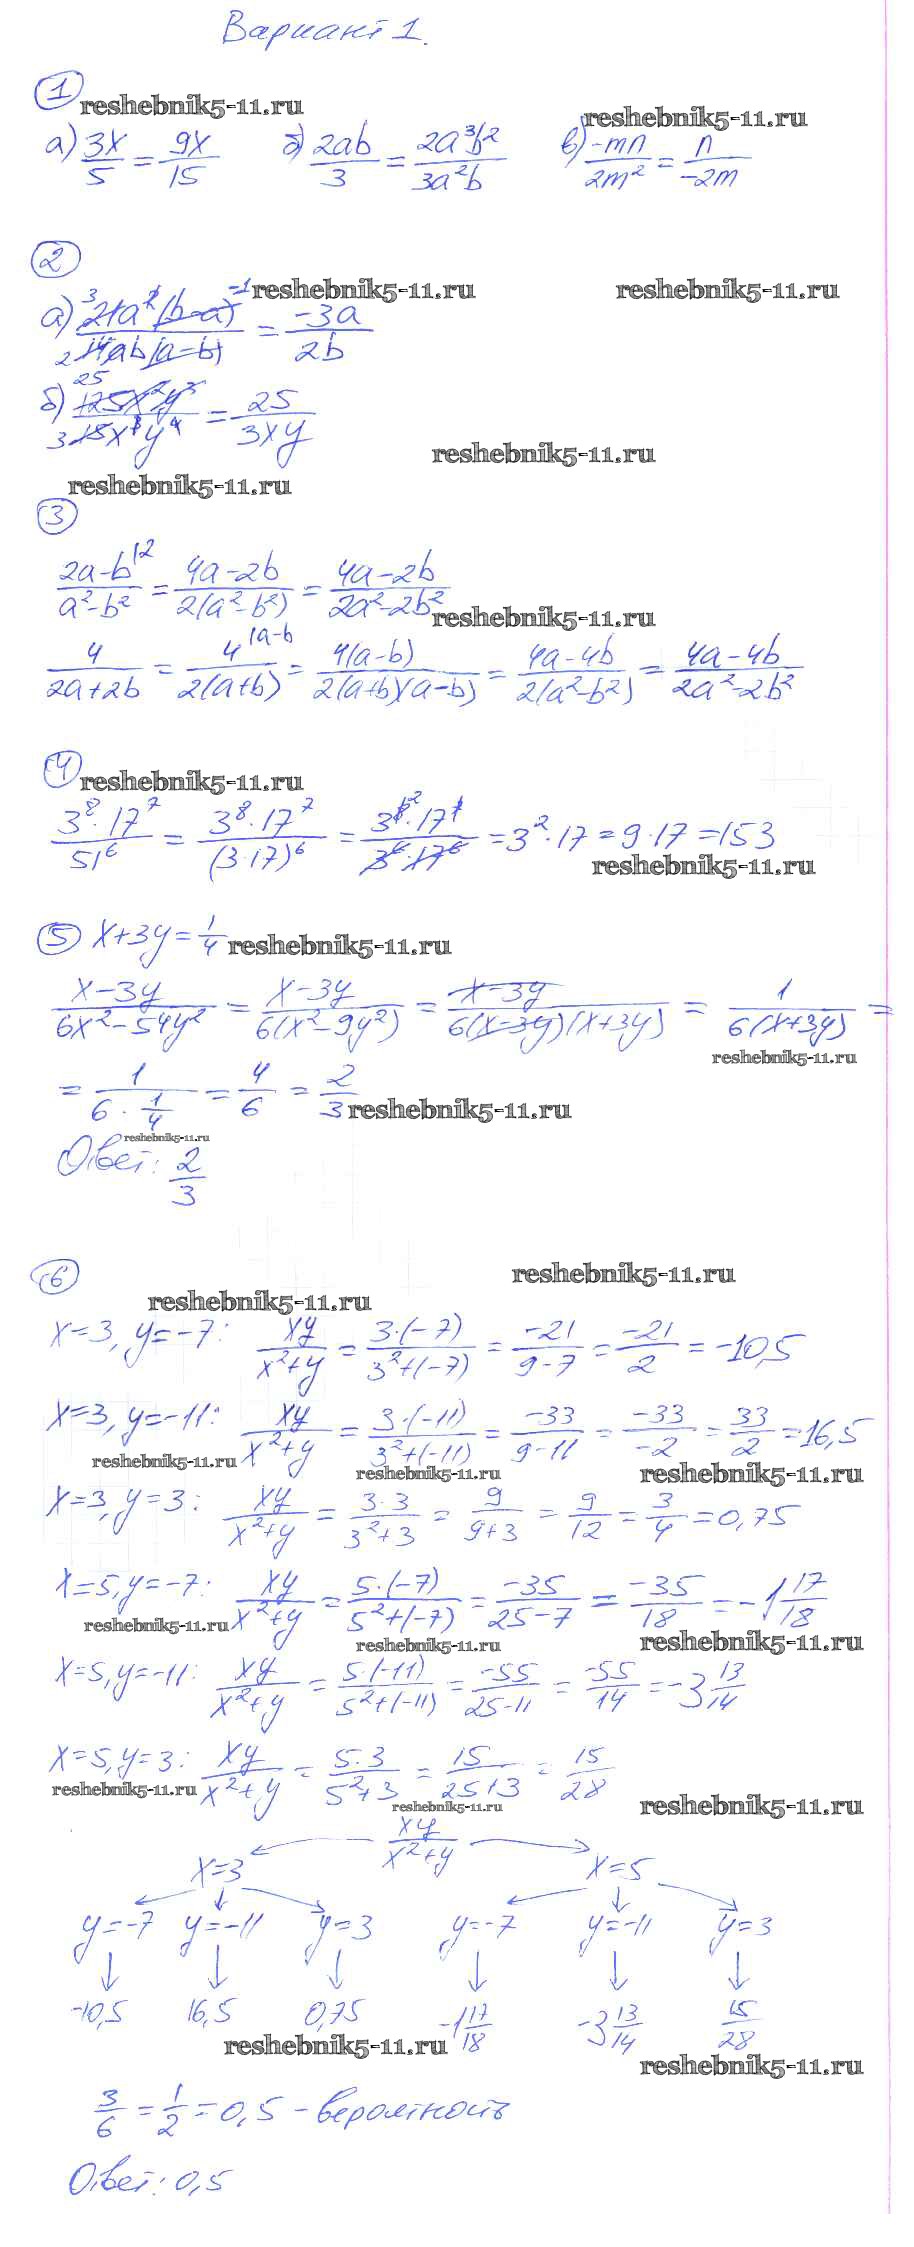 Вариант 1.
1 reshebnik5-11.ru
reshebnik5-11.ru
а) 3x/5 = 9x/15 б) 2ab/3 = 2a³b²/3a²b в) -mn/2m² = n/-2m
2
reshebnik5-11.ru reshebnik5-11.ru
а) 21a²(b-a)/14ab(a-b) = -3a/2b
б) 125x²y³/15x³y⁴ = 25/3xy
reshebnik5-11.ru
reshebnik5-11.ru
3
2a-b|2/a²-b² = 4a-2b/2(a²-b²) = 4a-2b/2a²-2b²
reshebnik5-11.ru
4/2a+2b = 4|a-b/2(a+b) = 4(a-b)/2(a+b)(a-b) = 4a-4b/2(a²-b²) = 4a-4b/2a²-2b²
4 reshebnik5-11.ru
3⁸·17⁷/51⁶ = 3⁸·17⁷/(3·17)⁶ = 3⁸·17⁷/3⁶·17⁶ = 3²·17 = 9·17 = 153
reshebnik5-11.ru
5 x+3y=1/4 reshebnik5-11.ru
x-3y/6x²-54y² = x-3y/6(x²-9y²) = x-3y/6(x-3y)(x+3y) = 1/6(x+3y) =
reshebnik5-11.ru
= 1/6·1/4 = 4/6 = 2/3 reshebnik5-11.ru
reshebnik5-11.ru
Ответ: 2/3
6
reshebnik5-11.ru
reshebnik5-11.ru
x=3, y=-7: xy/x²+y = 3·(-7)/3²+(-7) = -21/9-7 = -21/2 = -10,5
x=3, y=-11: xy/x²+y = 3·(-11)/3²+(-11) = -33/9-11 = -33/-2 = 33/2 = 16,5
reshebnik5-11.ru reshebnik5-11.ru reshebnik5-11.ru
x=3, y=3: xy/x²+y = 3·3/3²+3 = 9/9+3 = 9/12 = 3/4 = 0,75
x=5, y=-7: xy/x²+y = 5·(-7)/5²+(-7) = -35/25-7 = -35/18 = -1 17/18
reshebnik5-11.ru reshebnik5-11.ru reshebnik5-11.ru
x=5, y=-11: xy/x²+y = 5·(-11)/5²+(-11) = -55/25-11 = -55/14 = -3 13/14
x=5, y=3: xy/x²+y = 5·3/5²+3 = 15/25+3 = 15/28
reshebnik5-11.ru reshebnik5-11.ru reshebnik5-11.ru
xy/x²+y
x=3 x=5
y=-7 y=-11 y=3 y=-7 y=-11 y=3
-10,5 16,5 0,75 -1 17/18 -3 13/14 15/28
reshebnik5-11.ru reshebnik5-11.ru
3/6 = 1/2 = 0,5 - вероятность
Ответ: 0,5